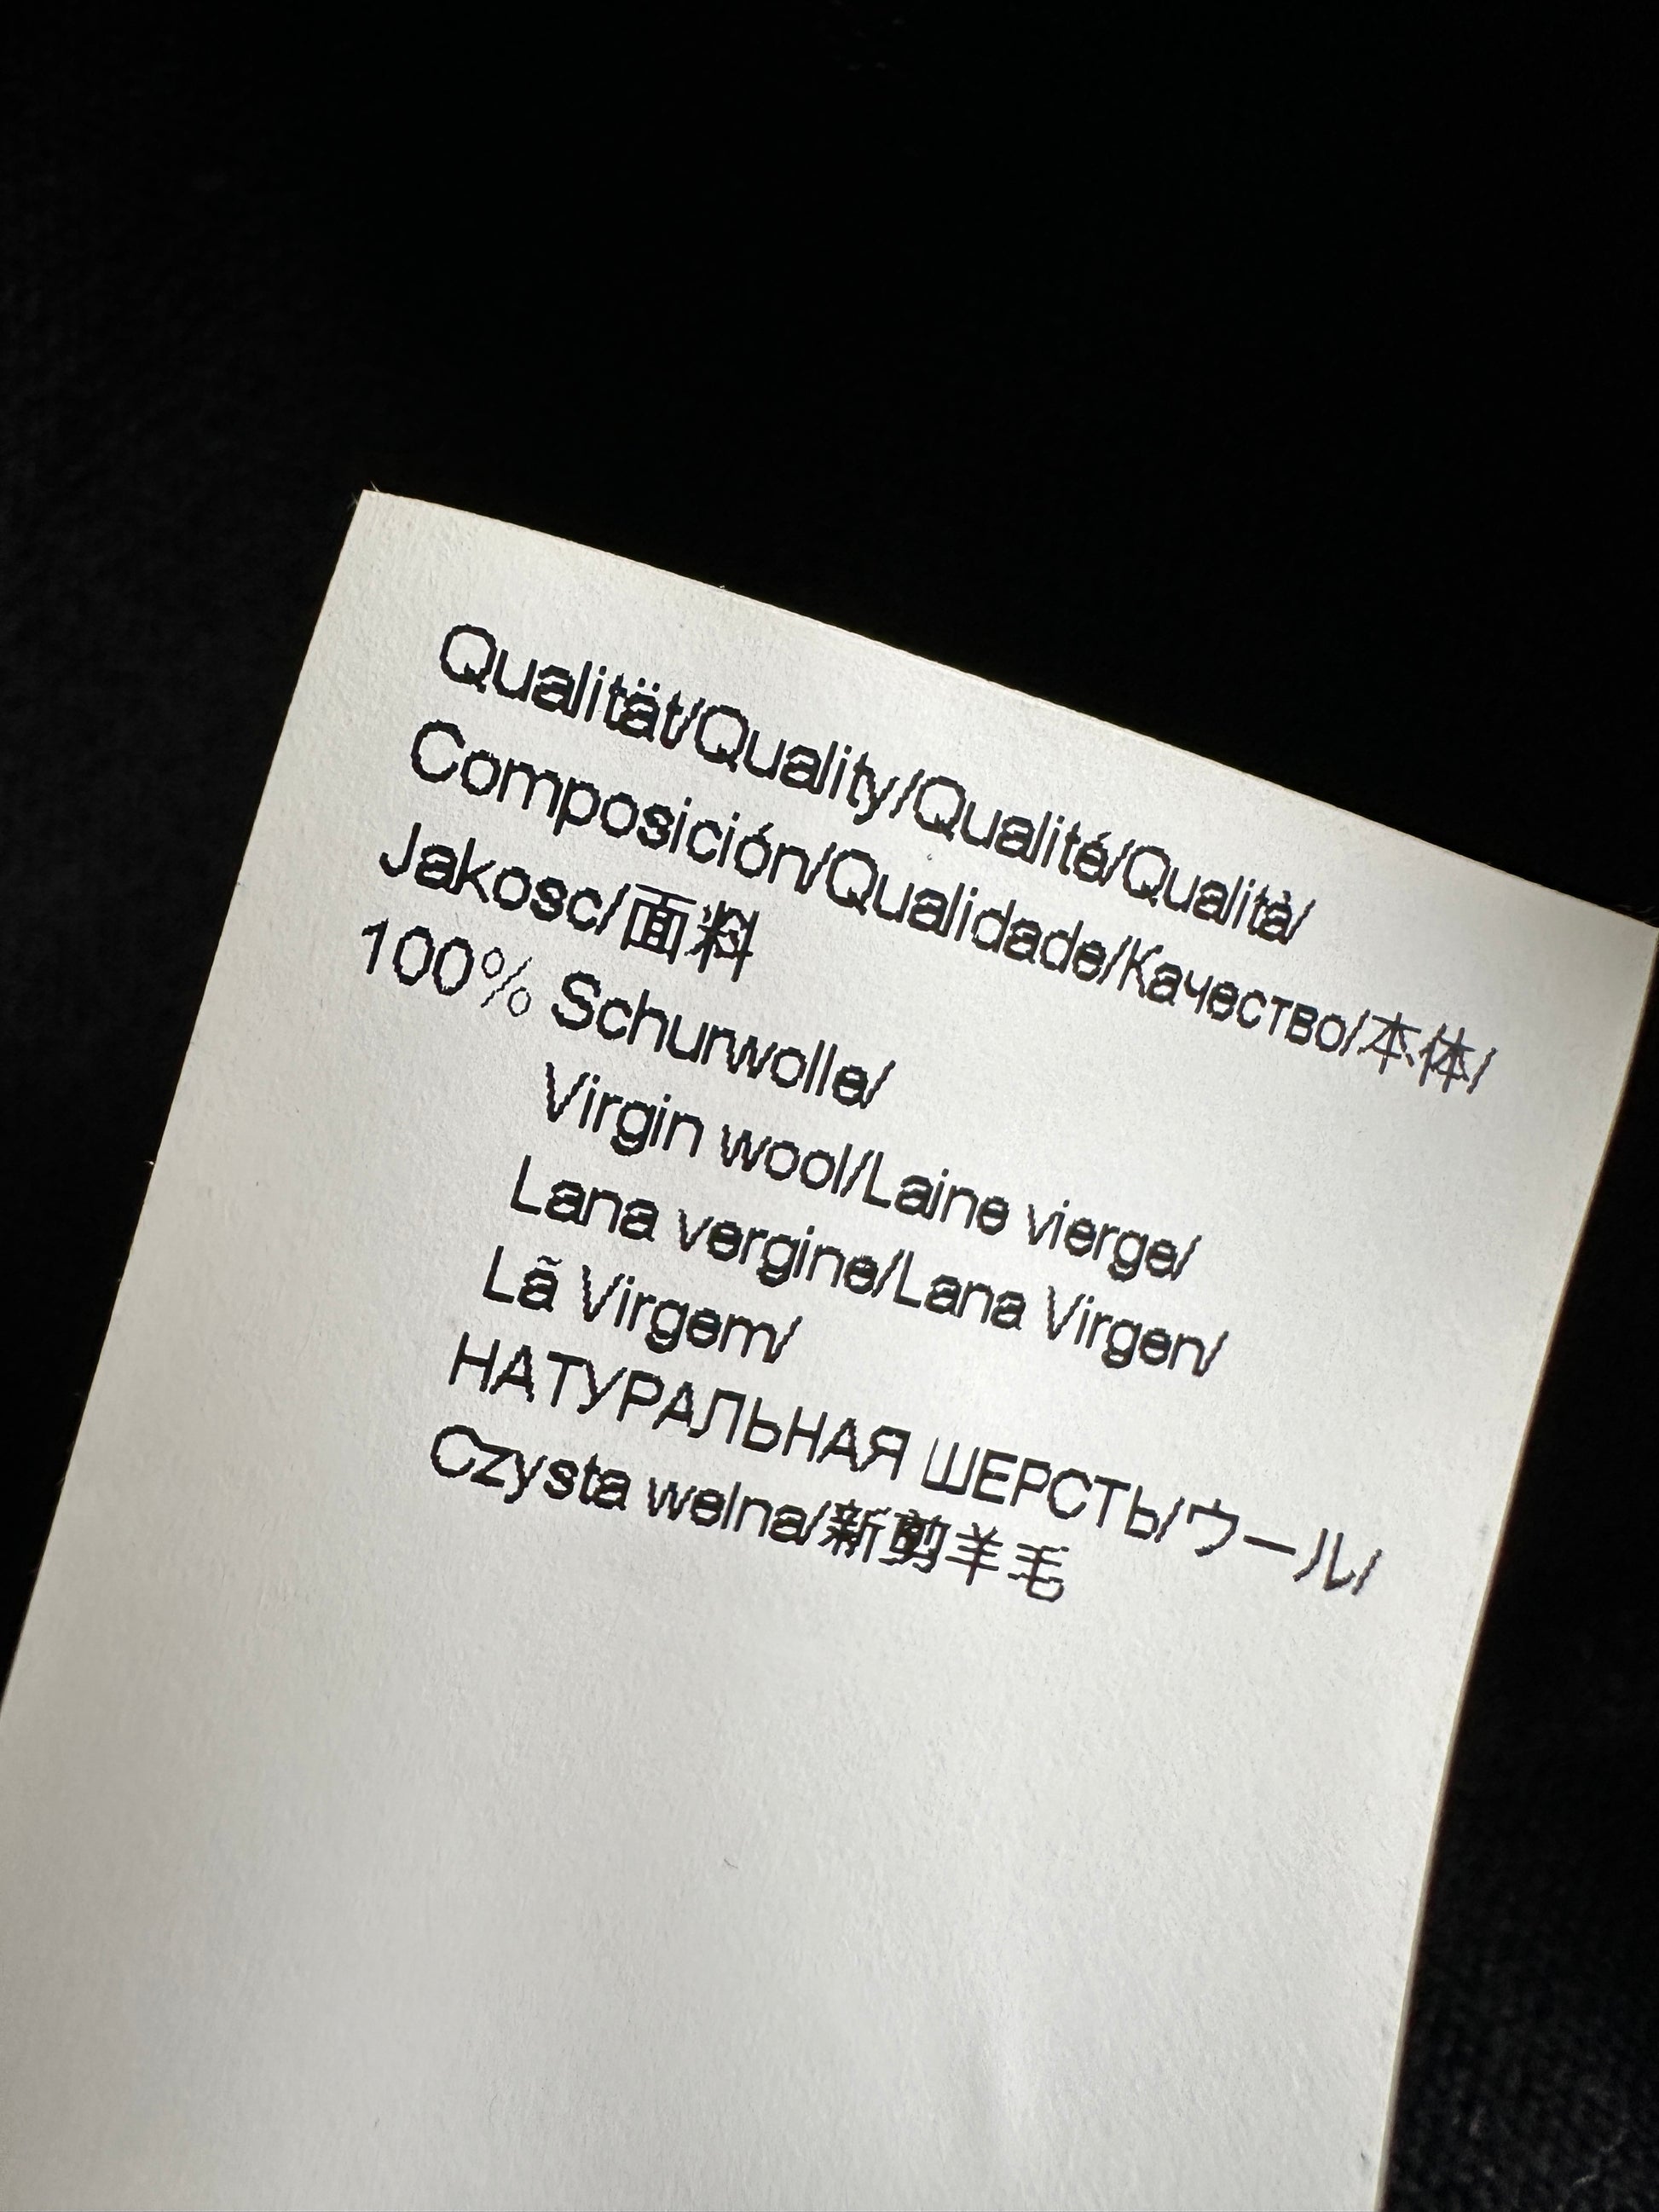 Qualität/Quality/Qualité/Qualità/
Composición/Qualidade/Качество/本体/
Jakosc/面料
100% Schurwolle/
Virgin wool/Laine vierge/
Lana vergine/Lana Virgen/
Lã Virgem/
НАТУРАЛЬНАЯ ШЕРСТЬ/ウール/
Czysta welna/新剪羊毛